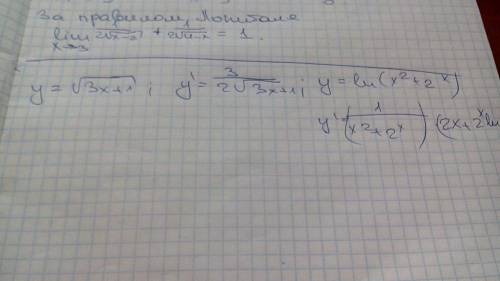 За правилом Лопіталя
lim 2√x-3 + 2√4-x = 1.
x→3
y = √3x+1 ; y' = 3/2√3x+1 ; y = ln(x²+2ˣ)
y' (1/x²+2ˣ) (2x+2ˣ ln